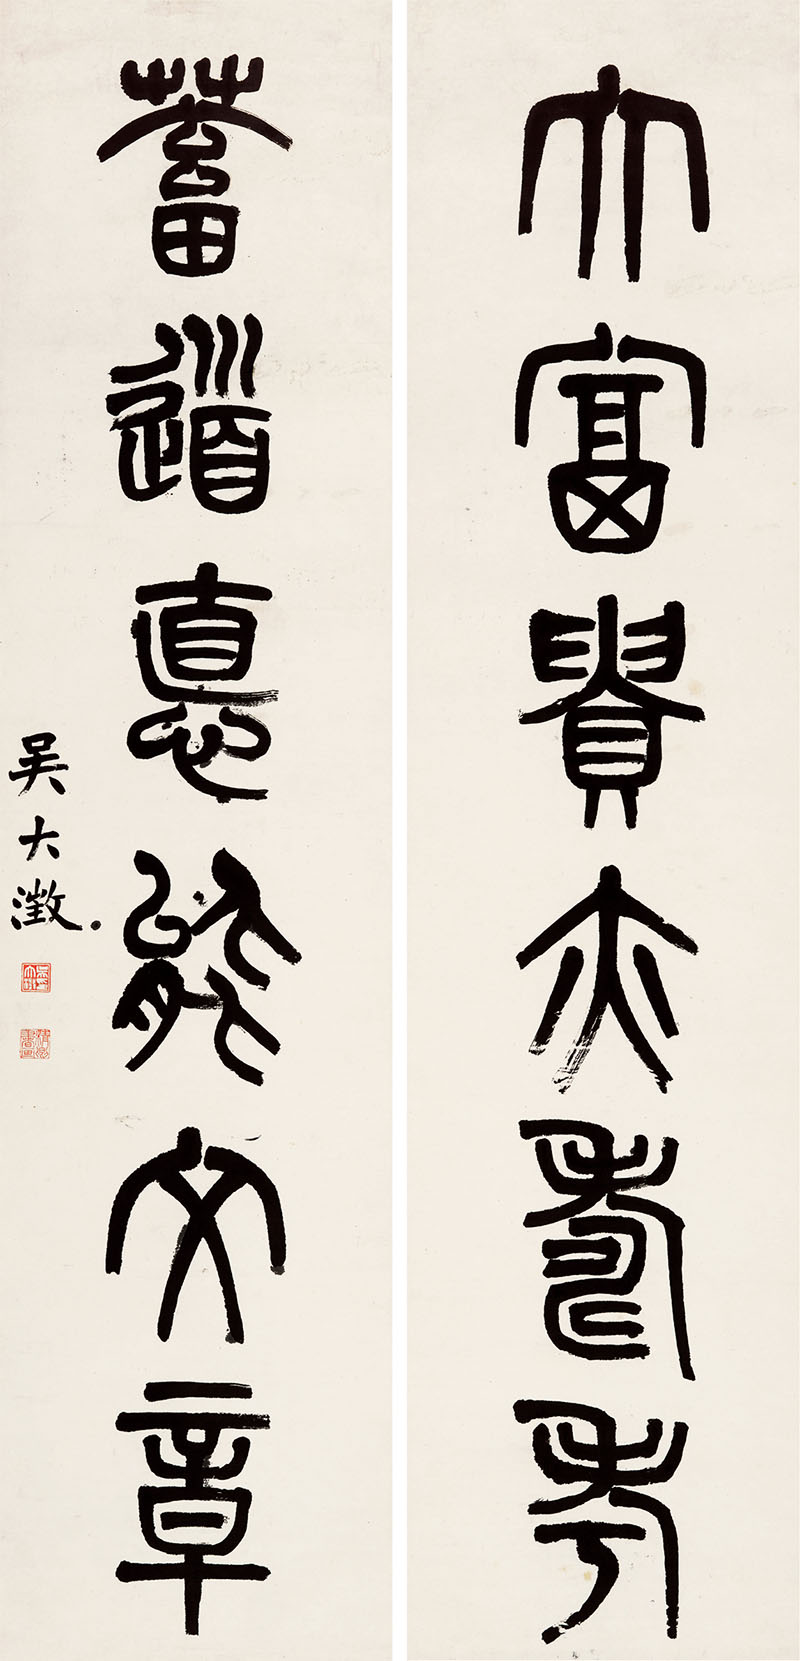 大富貴亦壽考
蓄道悳能文章
吳大澂